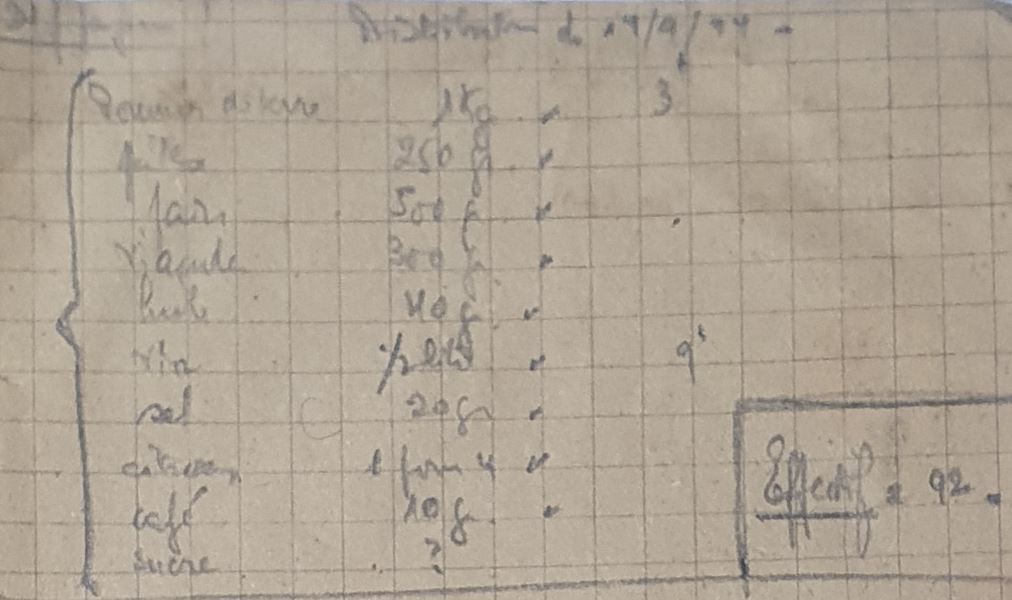 Distribution du 17/9/44
Pommes de terre 1Kg 3
pâtes 250 g
pain 500 g
viande 300 g
huile 40 g
vin 1/2 litre 9
sel 20 gr
citrons 1 pour 4
café 10 g
sucre ?
Effectif : 92.